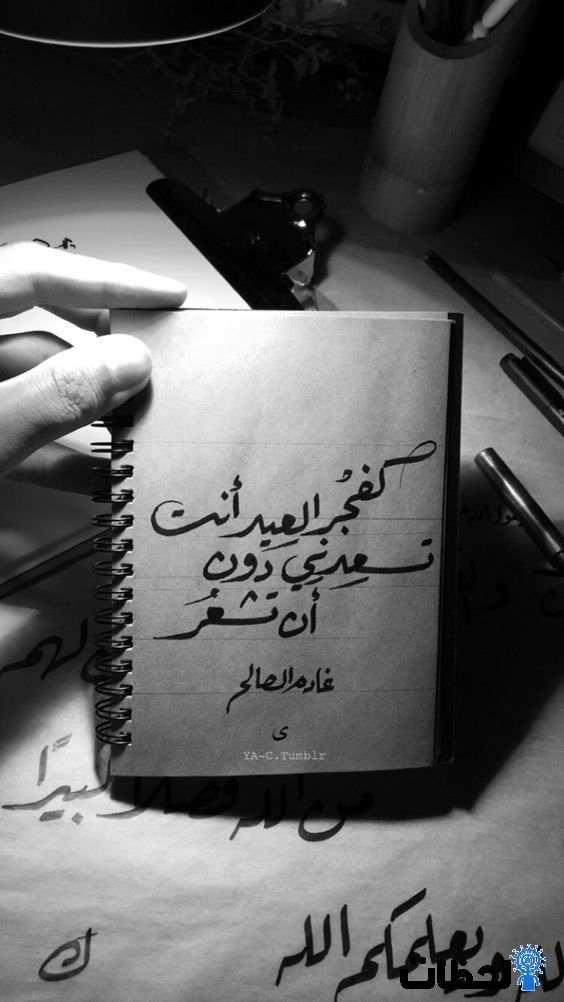 كفجْر العِيد أنت
تسعِدنِي دُون
أن تشعُر
غاده الصالح
ى
YA-C.Tumblr
من الله فضلاً كبيرًا
ويعلمكم الله
ك
لحظات